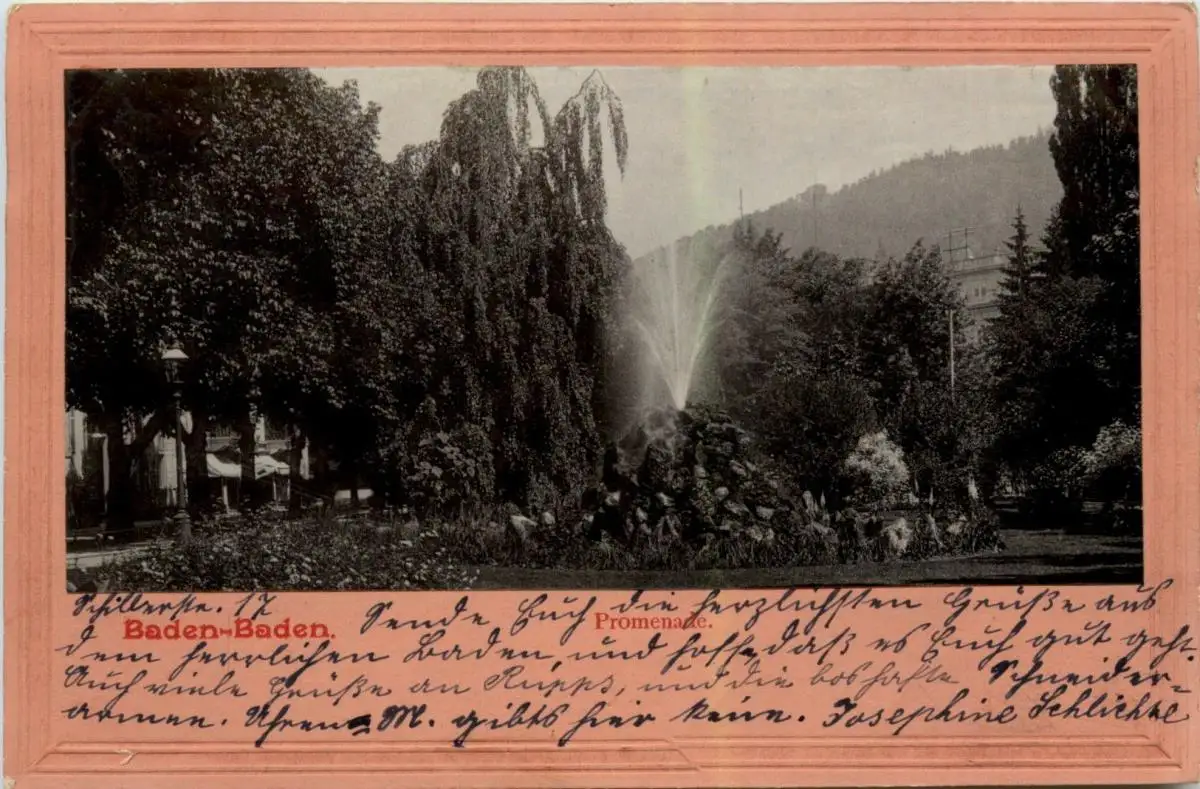 Schillerstr. 17
Sende Euch die herzlichsten Grüße aus
Baden-Baden.
Promenade.
dem herrlichen Baden, und hoffe, daß es Euch gut geht.
Auch viele Grüße an Rupps, und die boshafte Schneider-
armen. Uhren M. gibts hier keine. Josephine Schlichte